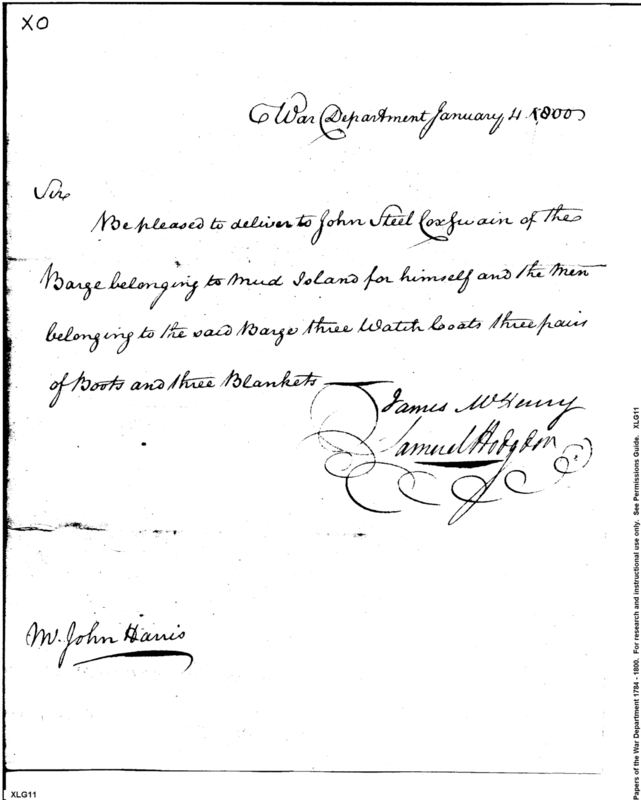 XO
War Department January 4 1800
Sir
Be pleased to deliver to John Steel Coxswain of the
Barge belonging to Mud Island for himself and the Men
belonging to the said Barge three Watch Coats three pairs
of Boots and three Blankets
James McHenry
Samuel Hodgdon
Mr. John Harris
XLG11
Papers of the War Department 1784 - 1800. For research and instructional use only. See Permissions Guide. XLG11